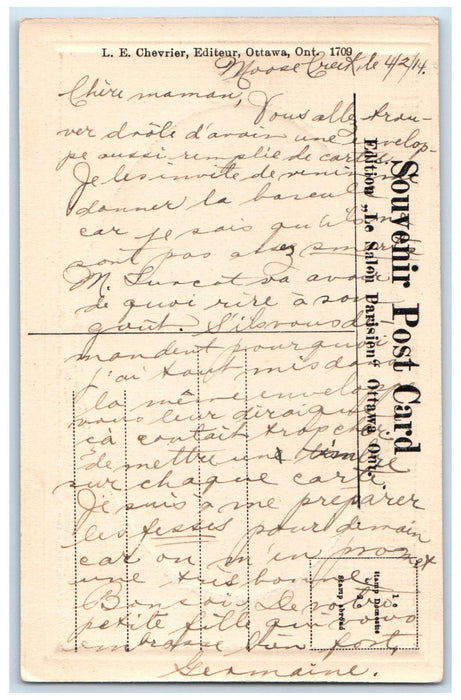 L. E. Chevrier, Editeur, Ottawa, Ont. 1709
Moose Creek, le 4/2/14.
Chère maman,
Vous allez trou-
ver drôle d'avoir une envelop-
pe aussi remplie de cartes.
Je les invite de venir me
donner la bascule
car je sais qu'ils ne
sont pas assez smarts
M. va avoir
de quoi rire à son
goût. S'ils vous de-
mandent pourquoi
j'ai tout mis dans
la même envelop
vous leur direz que
ça coutait trop cher
de mettre un timbre
sur chaque carte
Je suis à me préparer
les fesses pour demain
car on m'en promet
une très bonne
Bonsoir De votre
petite fille qui vous
embrasse bien fort,
Germaine.
Souvenir Post Card
Edition „Le Salon Parisien" Ottawa Ont.
Stamp Domestic
1c.
Stamp abroad
2c.